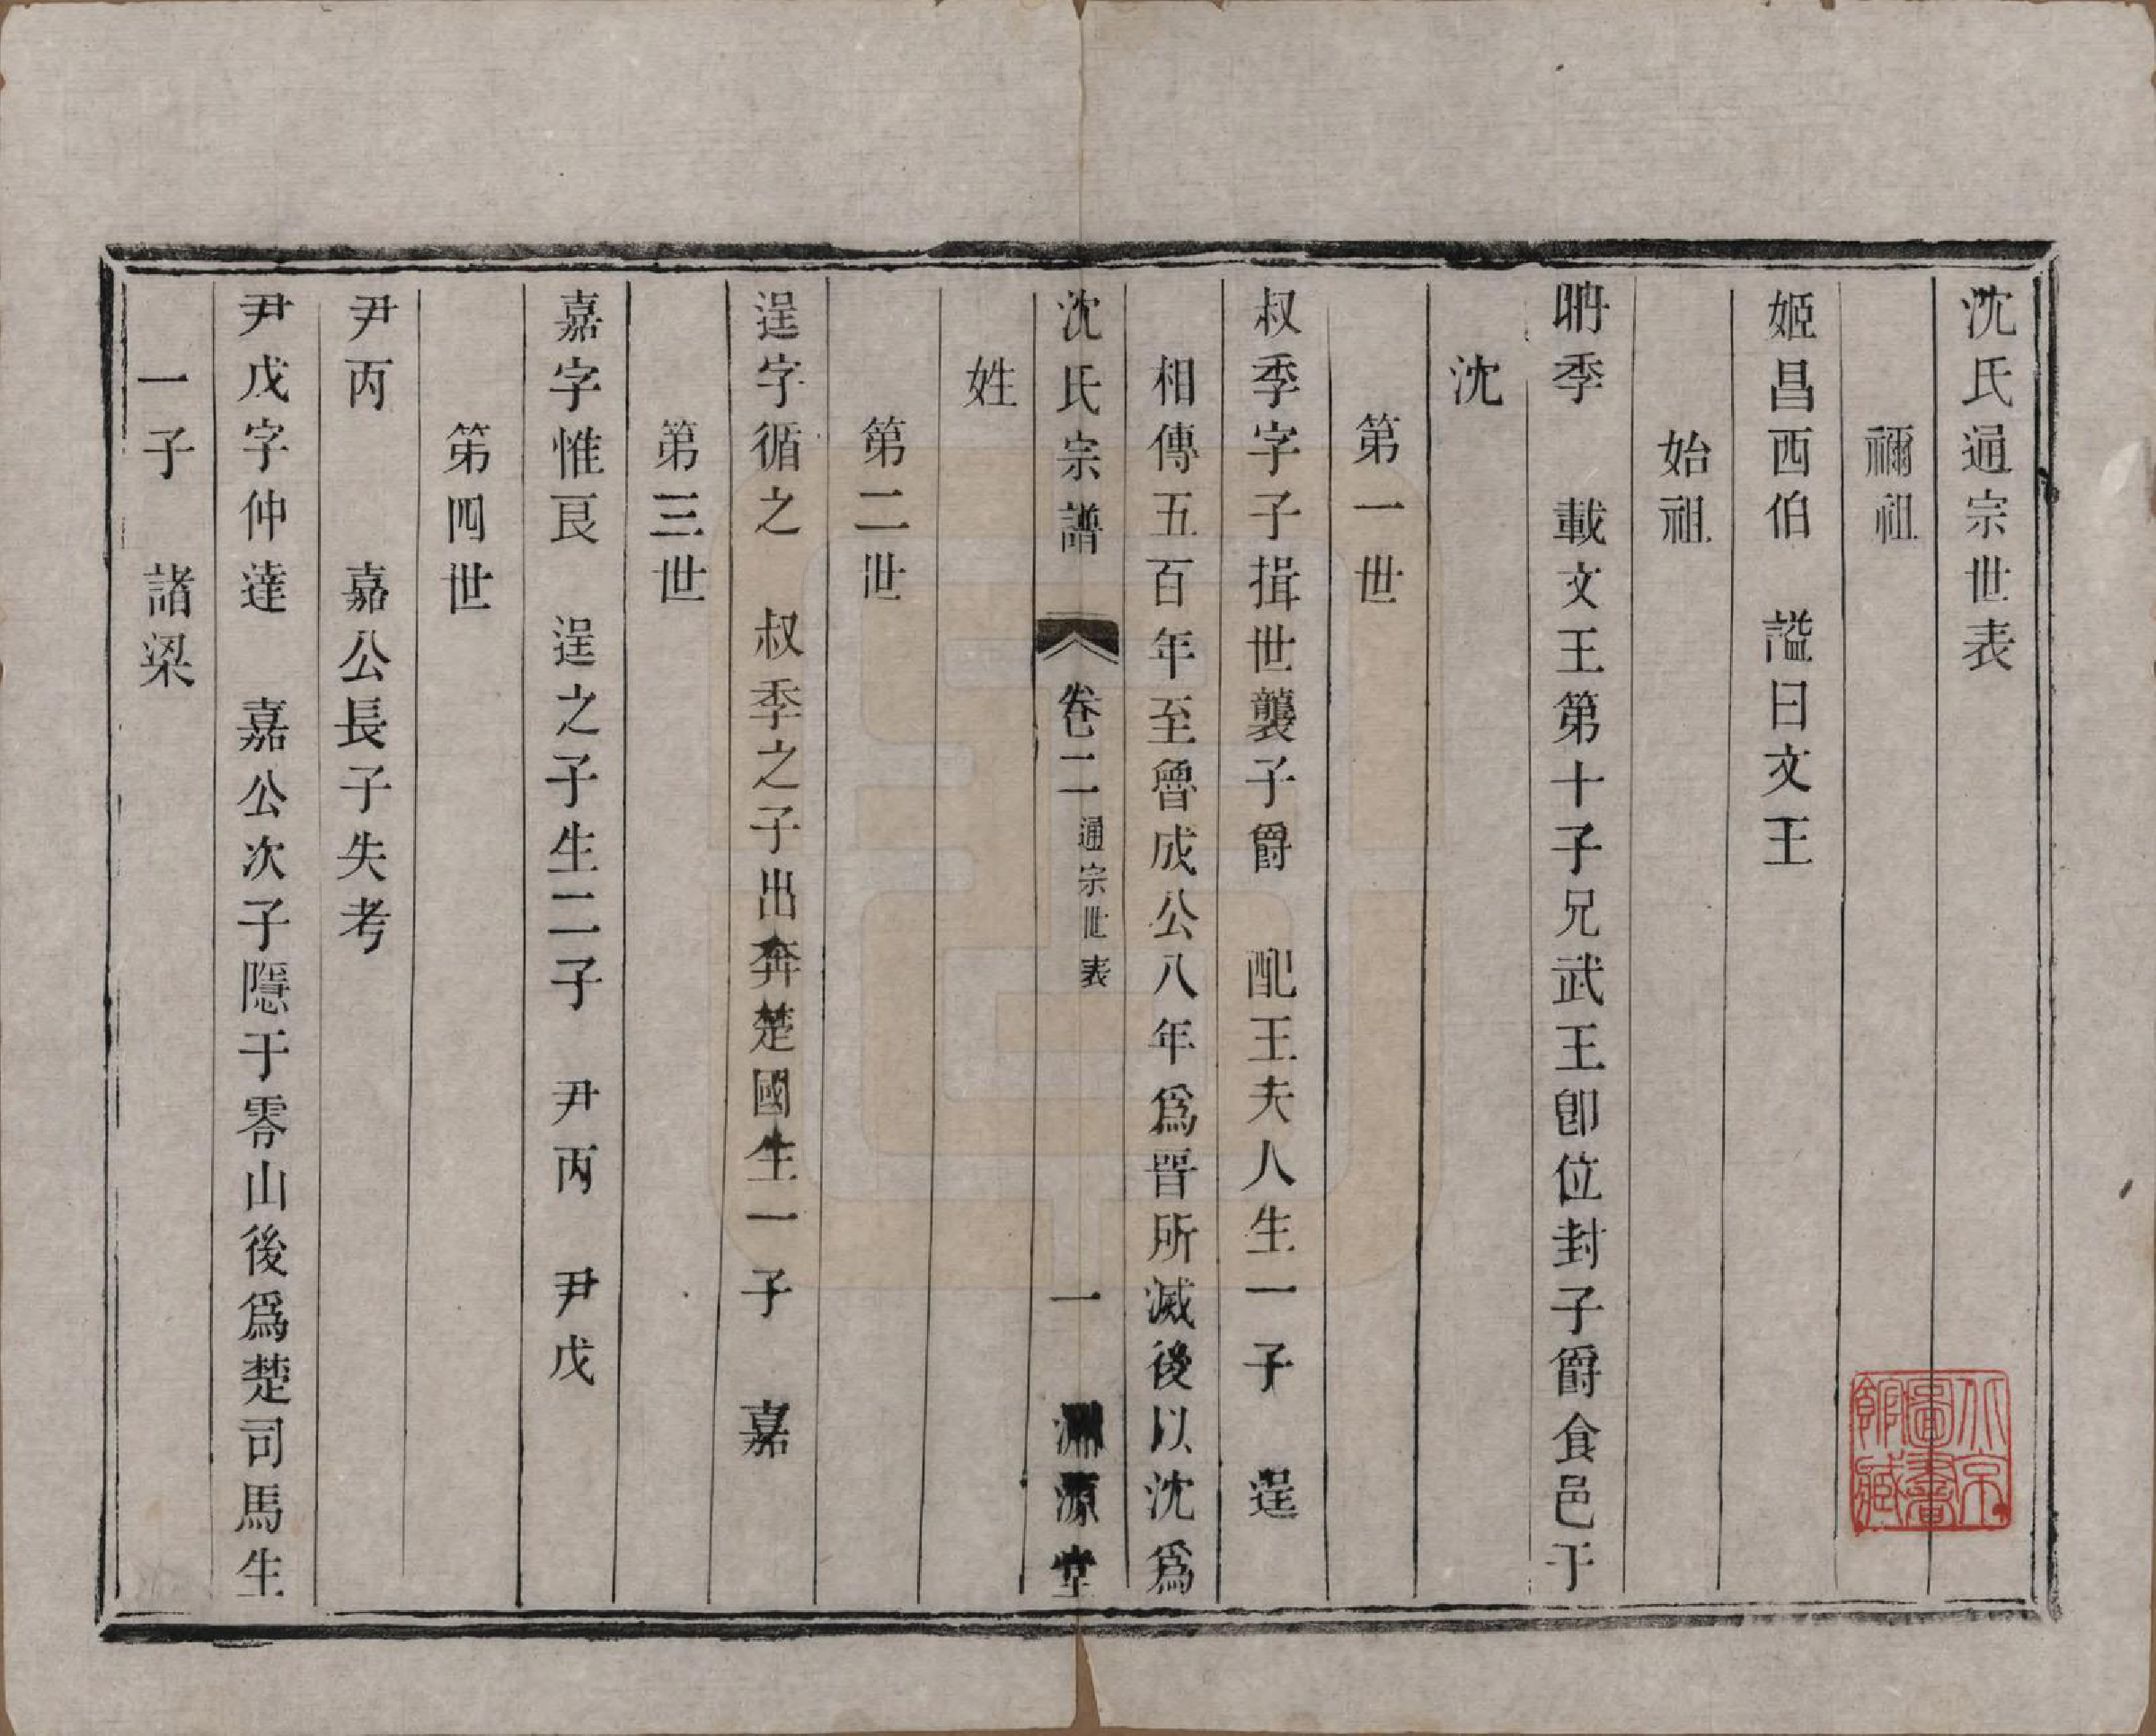 沈氏通宗世表
禰祖
姬昌西伯 諡曰文王
始祖
聃季 載文王第十子兄武王卽位封子爵食邑于
沈
第一世
叔季字子揖世襲子爵 配王夫人生一子 逞
相傳五百年至魯成公八年爲晋所滅後以沈爲
沈氏宗譜 卷二 通宗世表 一 淵源堂
姓
第二世
逞字循之 叔季之子出奔楚國生一子 嘉
第三世
嘉字惟艮 逞之子生二子 尹丙 尹戊
第四世
尹丙 嘉公長子失考
尹戊字仲達 嘉公次子隱于零山後爲楚司馬生
一子 諸梁
北京圖書館藏